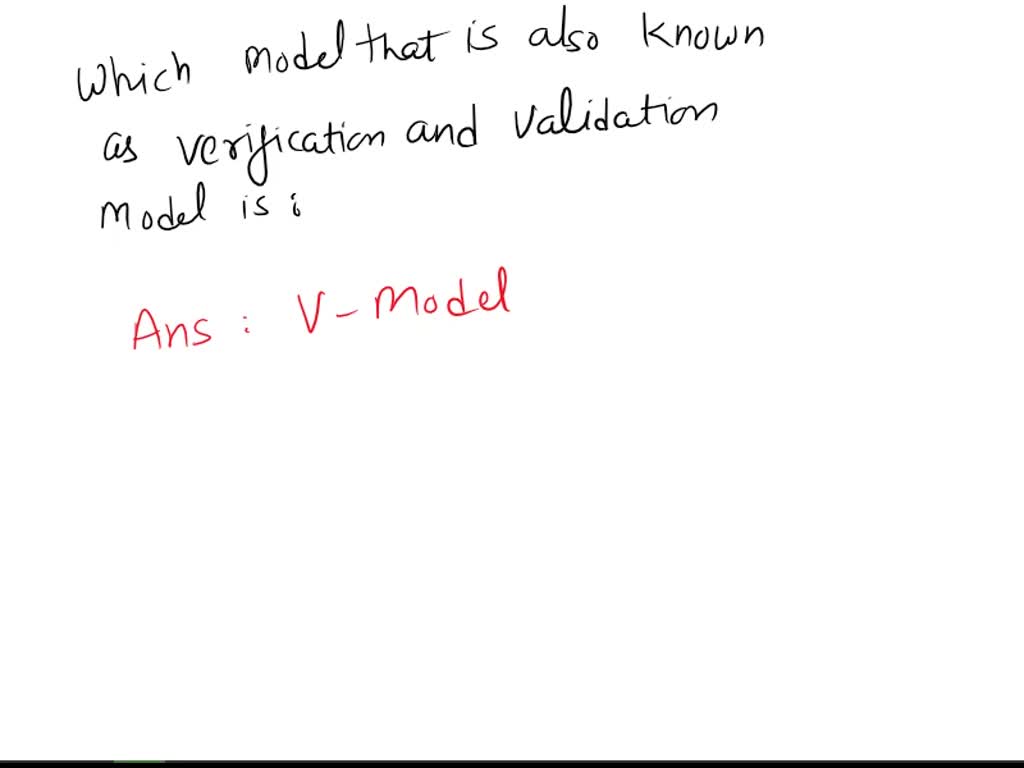 Which model that is also known
as verification and validation
Model is :
Ans : V - Model